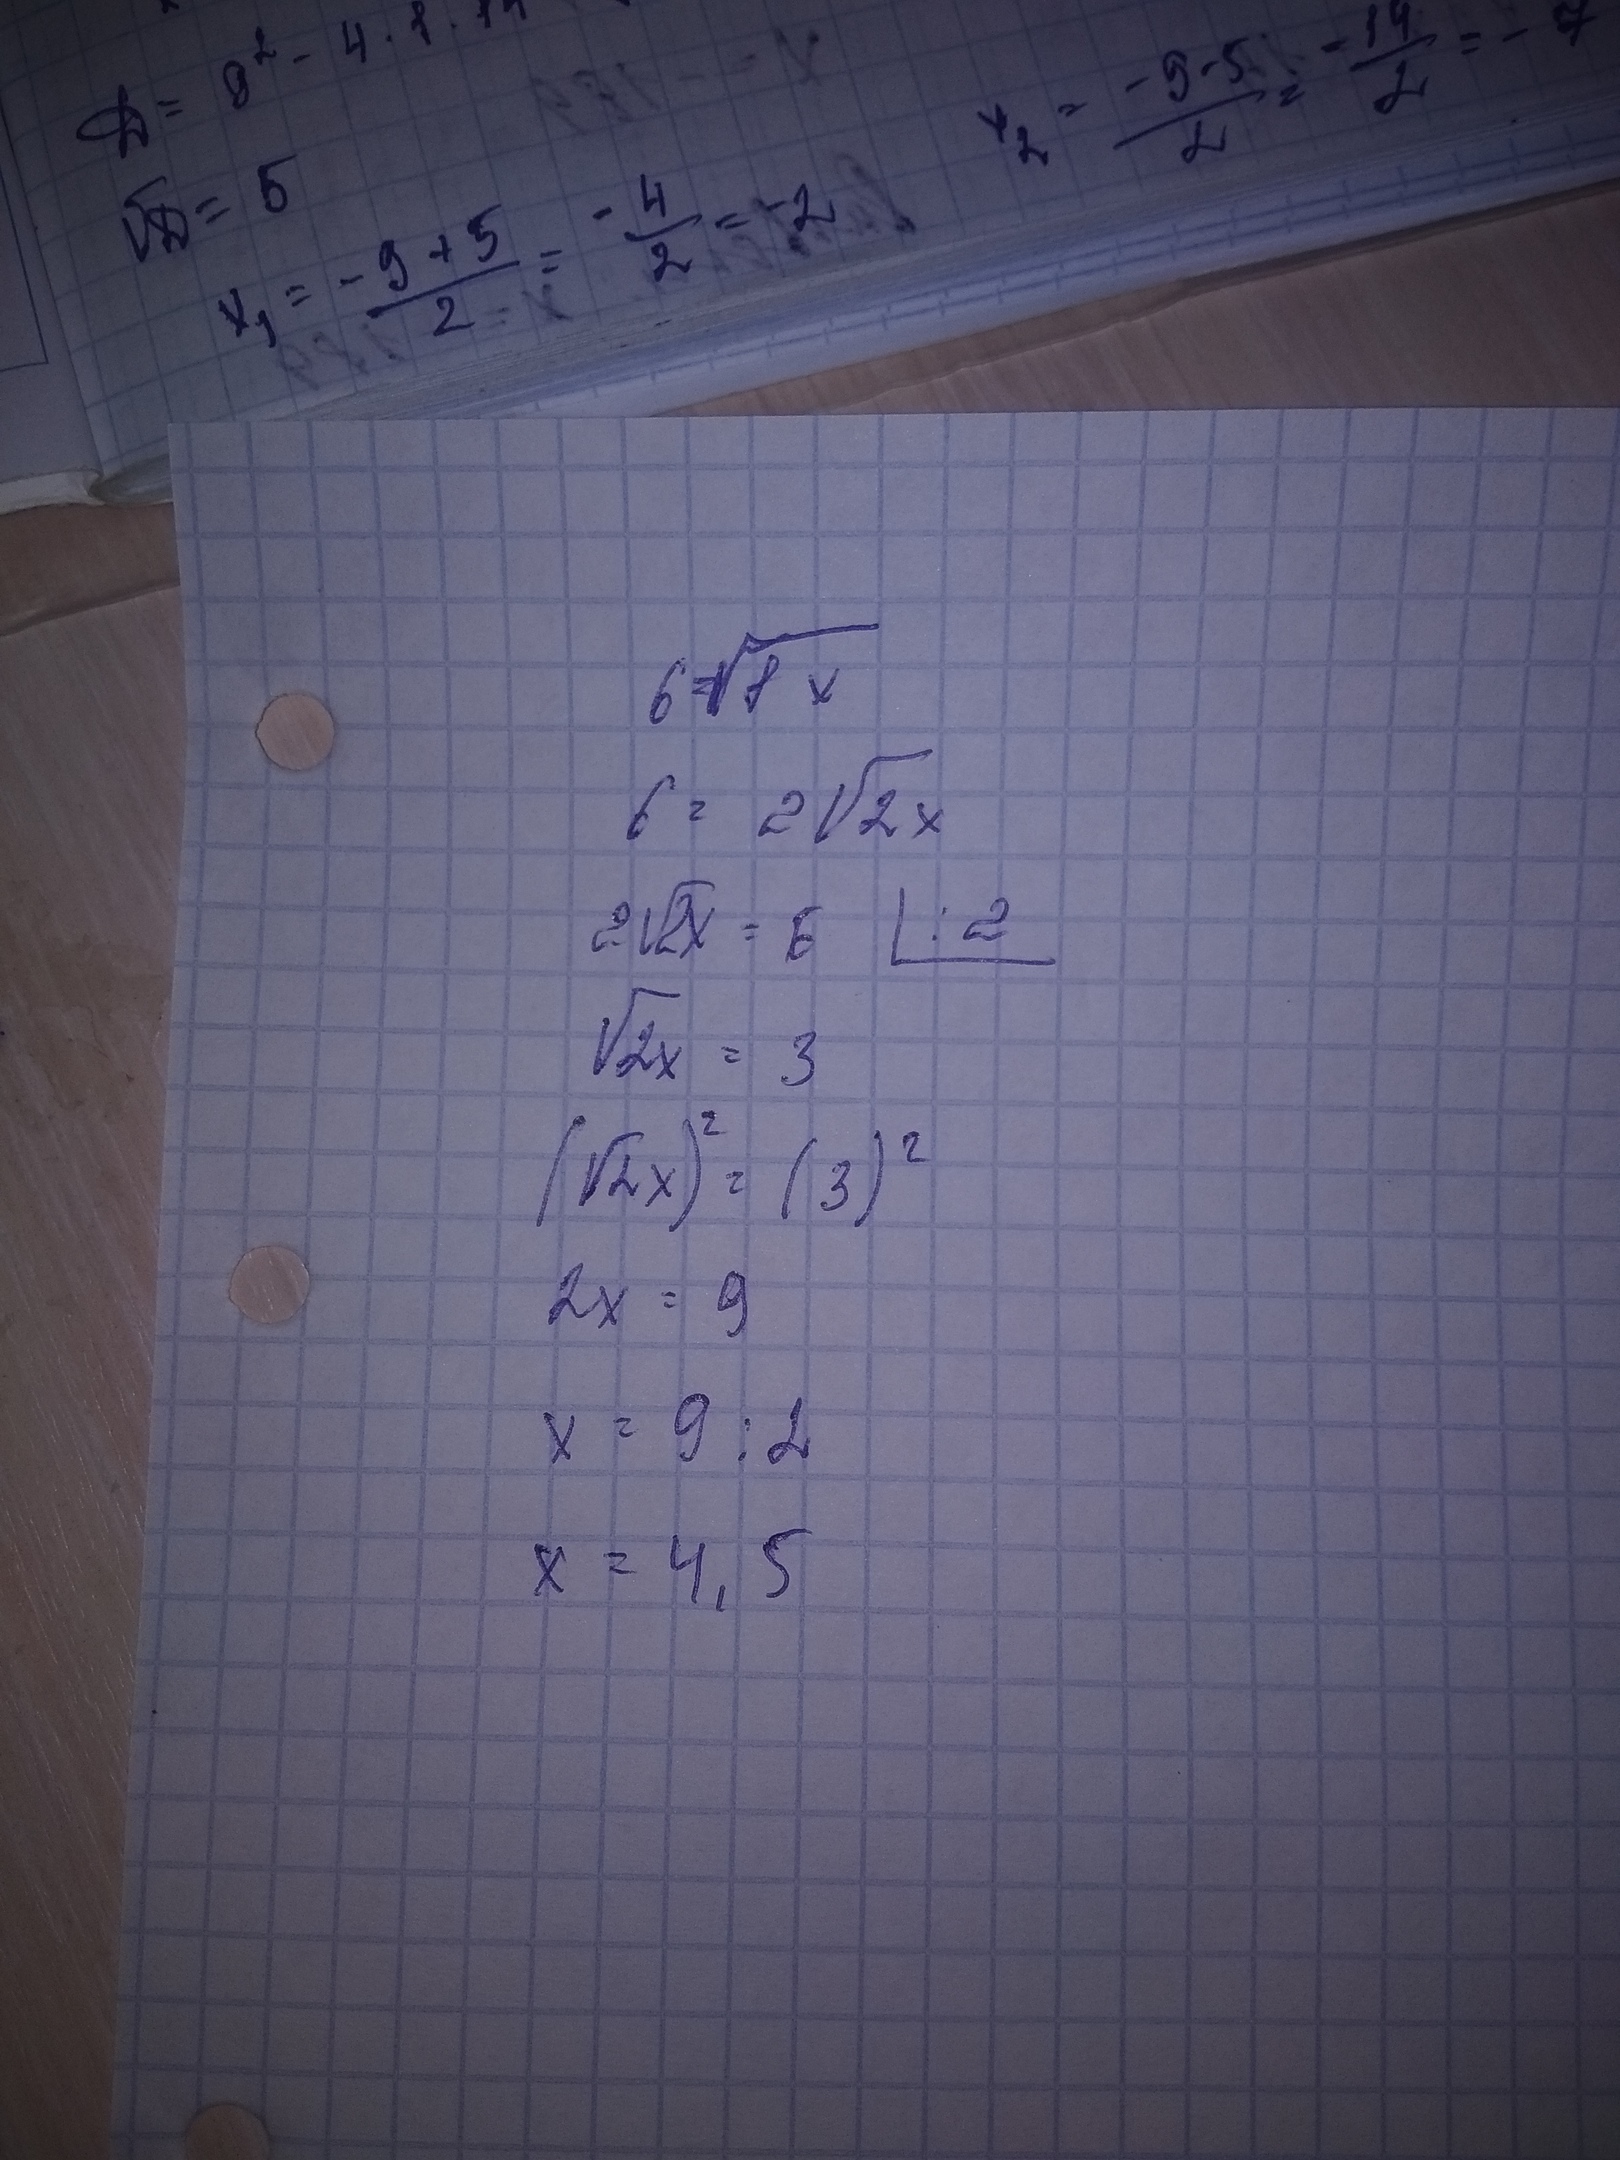 D = 9² - 4 · 1 · 14
√D = 5
x₁ = (-9+5)/2 = -4/2 = -2
x₂ = (-9-5)/2 = -14/2 = -7
6=√8x
6 = 2√2x
2√2x = 6 |: 2
√2x = 3
(√2x)² = (3)²
2x = 9
x = 9 : 2
x = 4,5